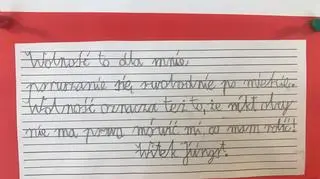 Wolność to dla mnie
poruszanie się swobodnie po mieście.
Wolność oznacza też to, że nikt obcy
nie ma prawa mówić mi, co mam robić!
Witek